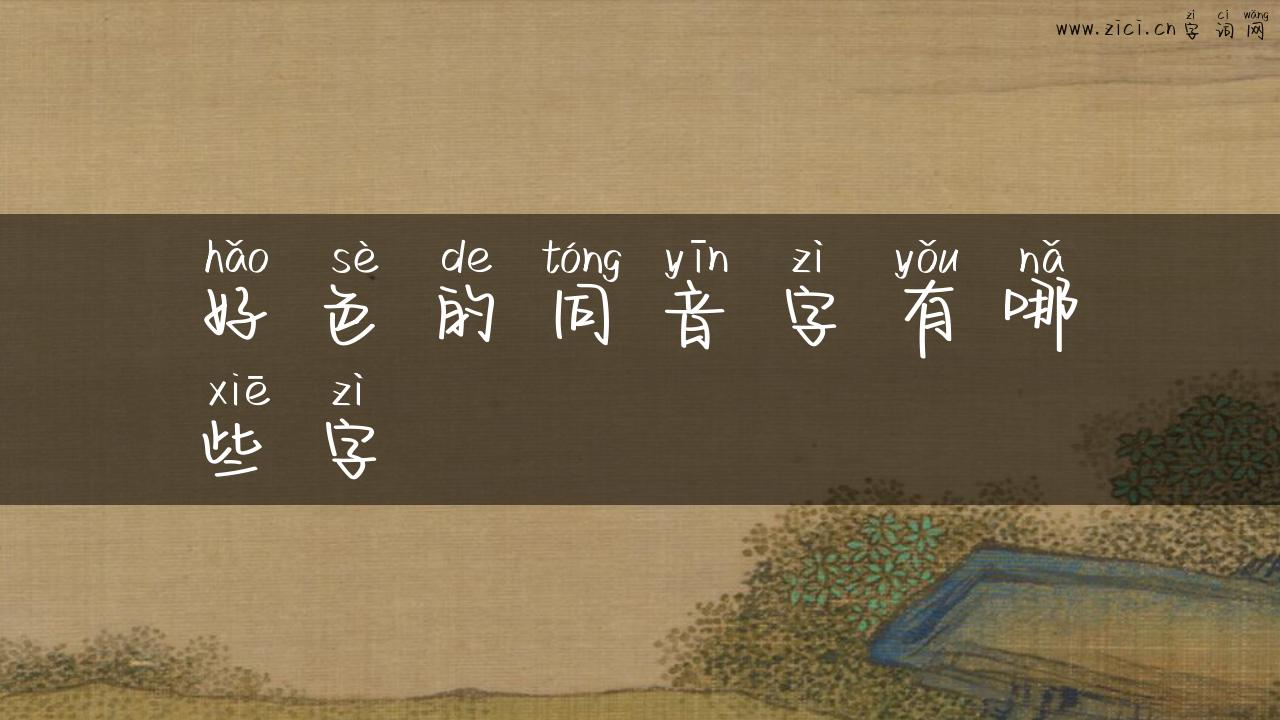 zì cí wǎng
www.zici.cn 字词网
hǎo sè de tóng yīn zì yǒu nǎ
好色的同音字有哪
xiē zì
些字